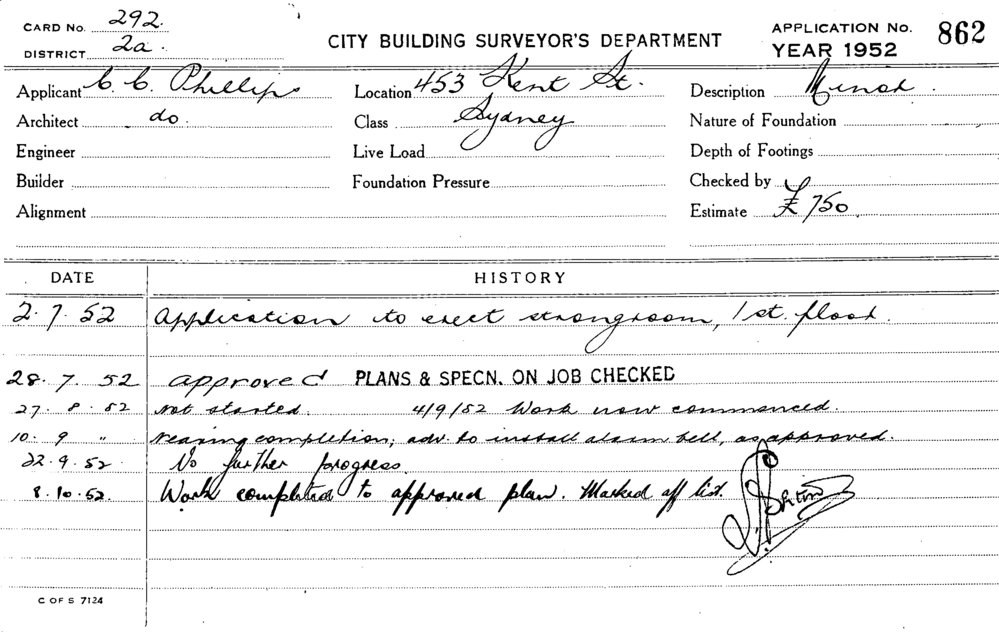 CARD No. 292. CITY BUILDING SURVEYOR'S DEPARTMENT APPLICATION No. 862
DISTRICT 2a. YEAR 1952
Applicant C. C. Phillips Location 453 Kent St. Description Minor.
Architect do. Class Sydney Nature of Foundation
Engineer Live Load Depth of Footings
Builder Foundation Pressure Checked by
Alignment Estimate £750
DATE HISTORY
2.7.52 Application to erect strongroom, 1st. floor.
28.7.52 approved PLANS & SPECN. ON JOB CHECKED
27.8.52 not started. 4/9/52 Work now commenced.
10.9 " nearing completion; adv. to install alarm bell, as approved.
22.9.52. No further progress.
8.10.52. Work completed to approved plan. Marked off list.
C OF S 7124